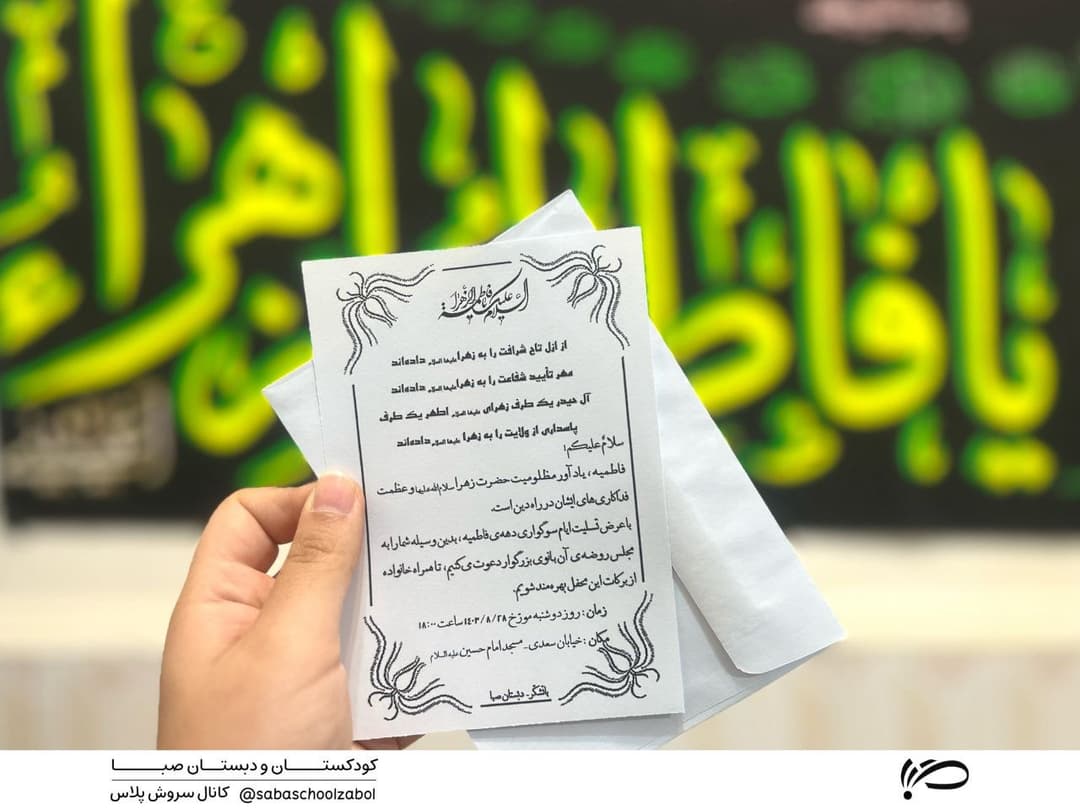 یا فاطمة الزهراء
السلام علیک یا فاطمة الزهرا
از ازل تاج شرافت را به زهرا علیها السلام داده‌اند
مهر تأیید شفاعت را به زهرا علیها السلام داده‌اند
آل حیدر یک طرف زهرای علیها السلام اطهر یک طرف
پاسداری از ولایت را به زهرا علیها السلام داده‌اند
سلامٌ علیکم؛
فاطمیه، یادآور مظلومیت حضرت زهرا سلام‌الله‌علیها و عظمت
فداکاری‌های ایشان در راه دین است.
با عرض تسلیت ایام سوگواری دهه‌ی فاطمیه، بدین وسیله شما را به
مجلس روضه‌ی آن بانوی بزرگوار دعوت می‌کنیم، تا همراه خانواده
از برکات این محفل بهره‌مند شویم.
زمان : روز دوشنبه مورخ ۱۴۰۳/۸/۲۸ ساعت ۱۸:۰۰
مکان : خیابان سعدی_ مسجد امام حسین علیه السلام
باتشکر- دبستان صبا
کودکستان و دبستان صبا
کانال سروش پلاس @sabaschoolzabol
صبا